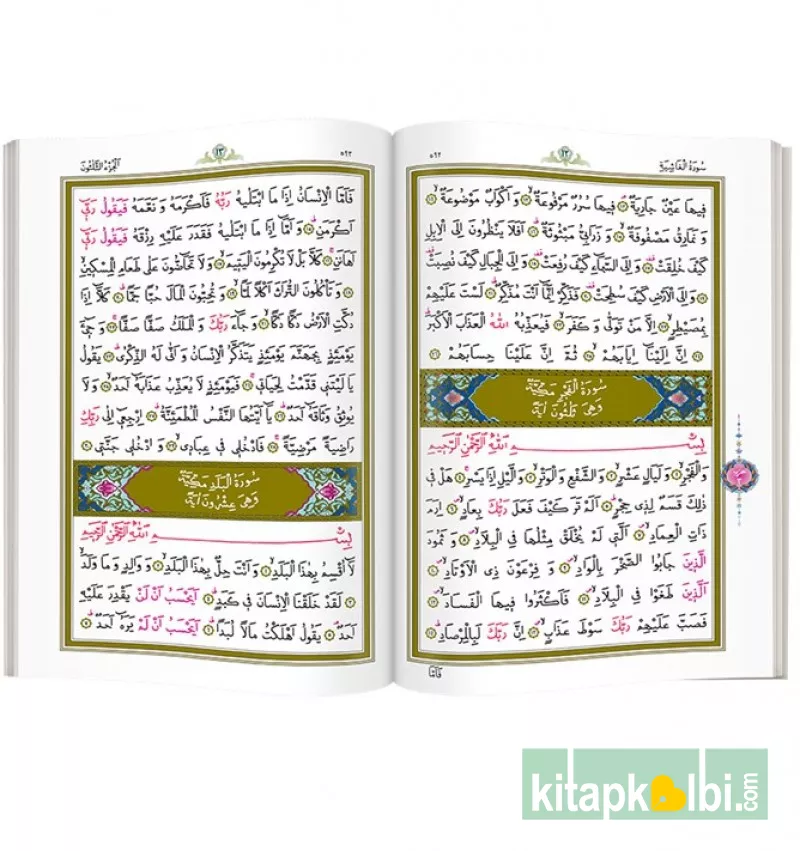 سُورَةُ الْغَاشِيَةِ
١٢
٥٩٢
فِيهَا عَيْنٌ جَارِيَةٌ ﴿١٢﴾ فِيهَا سُرُرٌ مَرْفُوعَةٌ ﴿١٣﴾ وَ اَكْوَابٌ مَوْضُوعَةٌ ﴿١٤﴾
وَ نَمَارِقُ مَصْفُوفَةٌ ﴿١٥﴾ وَ زَرَابِيُّ مَبْثُوثَةٌ ﴿١٦﴾ اَفَلَا يَنْظُرُونَ اِلَى الْاِبِلِ
كَيْفَ خُلِقَتْ ﴿١٧﴾ وَ اِلَى السَّمَٓاءِ كَيْفَ رُفِعَتْ ﴿١٨﴾ وَ اِلَى الْجِبَالِ كَيْفَ نُصِبَتْ
﴿١٩﴾ وَ اِلَى الْاَرْضِ كَيْفَ سُطِحَتْ ﴿٢٠﴾ فَذَكِّرْ اِنَّمَٓا اَنْتَ مُذَكِّرٌ ﴿٢١﴾ لَسْتَ عَلَيْهِمْ
بِمُصَيْطِرٍ ﴿٢٢﴾ اِلَّا مَنْ تَوَلّٰى وَ كَفَرَ ﴿٢٣﴾ فَيُعَذِّبُهُ اللّٰهُ الْعَذَابَ الْاَكْبَرَ
﴿٢٤﴾ اِنَّ اِلَيْنَٓا اِيَابَهُمْ ﴿٢٥﴾ ثُمَّ اِنَّ عَلَيْنَا حِسَابَهُمْ ﴿٢٦﴾
سُورَةُ الْفَجْرِ مَكِّيَّةٌ
وَهِيَ ثَلٰثُونَ اٰيَةً
بِسْمِ اللّٰهِ الرَّحْمٰنِ الرَّحِيمِ
وَالْفَجْرِ ﴿١﴾ وَ لَيَالٍ عَشْرٍ ﴿٢﴾ وَ الشَّفْعِ وَ الْوَتْرِ ﴿٣﴾ وَ الَّيْلِ اِذَا يَسْرِ ﴿٤﴾ هَلْ فِي
ذٰلِكَ قَسَمٌ لِذِي حِجْرٍ ﴿٥﴾ اَلَمْ تَرَ كَيْفَ فَعَلَ رَبُّكَ بِعَادٍ ﴿٦﴾ اِرَمَ
ذَاتِ الْعِمَادِ ﴿٧﴾ اَلَّتِي لَمْ يُخْلَقْ مِثْلُهَا فِي الْبِلَادِ ﴿٨﴾ وَ ثَمُودَ
الَّذِينَ جَابُوا الصَّخْرَ بِالْوَادِ ﴿٩﴾ وَ فِرْعَوْنَ ذِي الْاَوْتَادِ ﴿١٠﴾
اَلَّذِينَ طَغَوْا فِي الْبِلَادِ ﴿١١﴾ فَاَكْثَرُوا فِيهَا الْفَسَادَ ﴿١٢﴾
فَصَبَّ عَلَيْهِمْ رَبُّكَ سَوْطَ عَذَابٍ ﴿١٣﴾ اِنَّ رَبَّكَ لَبِالْمِرْصَادِ ﴿١٤﴾
فَاَمَّا
٥٩٣
١٣
اَلْجُزْءُ الثَّلٰثُونَ
فَاَمَّا الْاِنْسَانُ اِذَا مَا ابْتَلٰيهُ رَبُّهُ فَاَكْرَمَهُ وَ نَعَّمَهُ فَيَقُولُ رَبِّٓي
اَكْرَمَنِ ﴿١٥﴾ وَ اَمَّٓا اِذَا مَا ابْتَلٰيهُ فَقَدَرَ عَلَيْهِ رِزْقَهُ فَيَقُولُ رَبِّٓي
اَهَانَنِ ﴿١٦﴾ كَلَّا بَلْ لَا تُكْرِمُونَ الْيَتِيمَ ﴿١٧﴾ وَ لَا تَحَٓاضُّونَ عَلٰى طَعَامِ الْمِسْكِينِ
﴿١٨﴾ وَ تَأْكُلُونَ التُّرَاثَ اَكْلًا لَمًّا ﴿١٩﴾ وَ تُحِبُّونَ الْمَالَ حُبًّا جَمًّا ﴿٢٠﴾ كَلَّٓا اِذَا
دُكَّتِ الْاَرْضُ دَكًّا دَكًّا ﴿٢١﴾ وَ جَٓاءَ رَبُّكَ وَ الْمَلَكُ صَفًّا صَفًّا ﴿٢٢﴾ وَ جِيٓءَ
يَوْمَئِذٍ بِجَهَنَّمَ يَوْمَئِذٍ يَتَذَكَّرُ الْاِنْسَانُ وَ اَنّٰى لَهُ الذِّكْرٰى ﴿٢٣﴾ يَقُولُ
يَا لَيْتَنِي قَدَّمْتُ لِحَيَاتِي ﴿٢٤﴾ فَيَوْمَئِذٍ لَا يُعَذِّبُ عَذَابَهُٓ اَحَدٌ ﴿٢٥﴾ وَ لَا
يُوثِقُ وَثَاقَهُٓ اَحَدٌ ﴿٢٦﴾ يَٓا اَيَّتُهَا النَّفْسُ الْمُطْمَئِنَّةُ ﴿٢٧﴾ اِرْجِعِٓي اِلٰى رَبِّكِ
رَاضِيَةً مَرْضِيَّةً ﴿٢٨﴾ فَادْخُلِي فِي عِبَادِي ﴿٢٩﴾ وَ ادْخُلِي جَنَّتِي ﴿٣٠﴾
سُورَةُ الْبَلَدِ مَكِّيَّةٌ
وَهِيَ عِشْرُونَ اٰيَةً
بِسْمِ اللّٰهِ الرَّحْمٰنِ الرَّحِيمِ
لَٓا اُقْسِمُ بِهٰذَا الْبَلَدِ ﴿١﴾ وَ اَنْتَ حِلٌّ بِهٰذَا الْبَلَدِ ﴿٢﴾ وَ وَالِدٍ وَ مَا وَلَدَ
﴿٣﴾ لَقَدْ خَلَقْنَا الْاِنْسَانَ فِي كَبَدٍ ﴿٤﴾ اَيَحْسَبُ اَنْ لَنْ يَقْدِرَ عَلَيْهِ
اَحَدٌ ﴿٥﴾ يَقُولُ اَهْلَكْتُ مَالًا لُبَدًا ﴿٦﴾ اَيَحْسَبُ اَنْ لَمْ يَرَهُٓ اَحَدٌ ﴿٧﴾
kitapkalbi.com